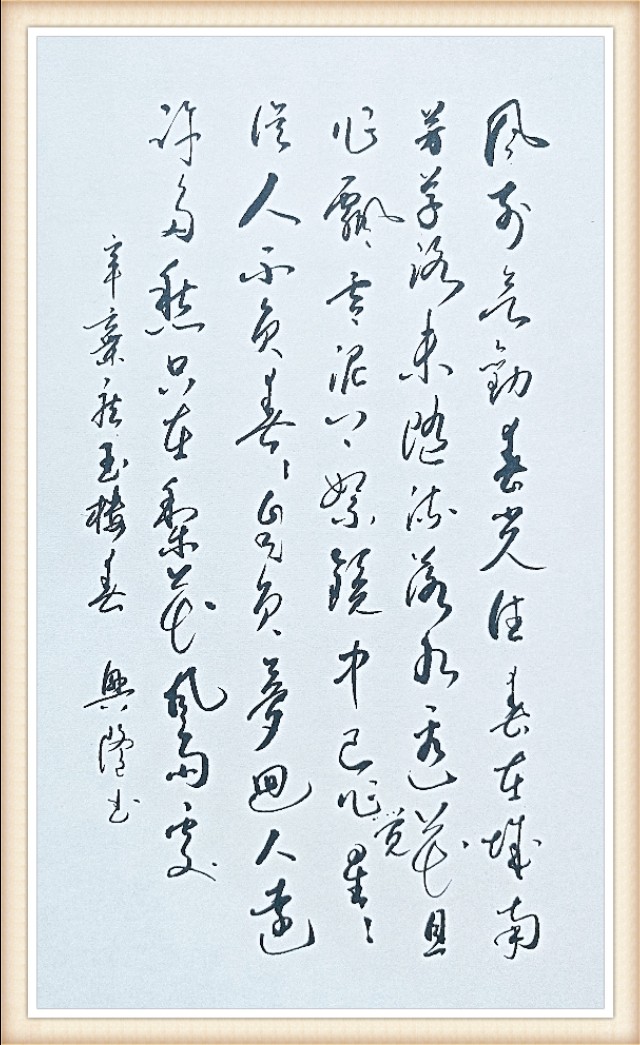 风前欲勸春光住春在城南
芳草路未随流落水边花且
作飄零泥上絮镜中已作觉星〻
误人不负春〻自负夢回人遠
许多愁只在梨花风雨处
辛棄疾玉楼春 興隆书